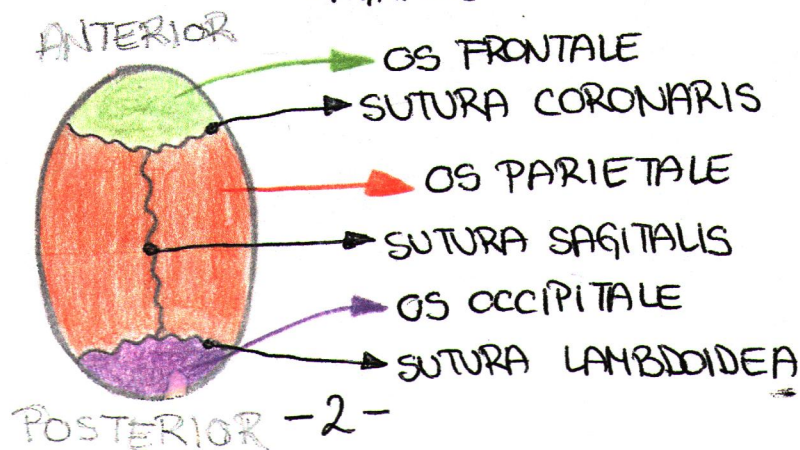 ANTERIOR
OS FRONTALE
SUTURA CORONARIS
OS PARIETALE
SUTURA SAGITALIS
OS OCCIPITALE
SUTURA LAMBDOIDEA
POSTERIOR
-2-